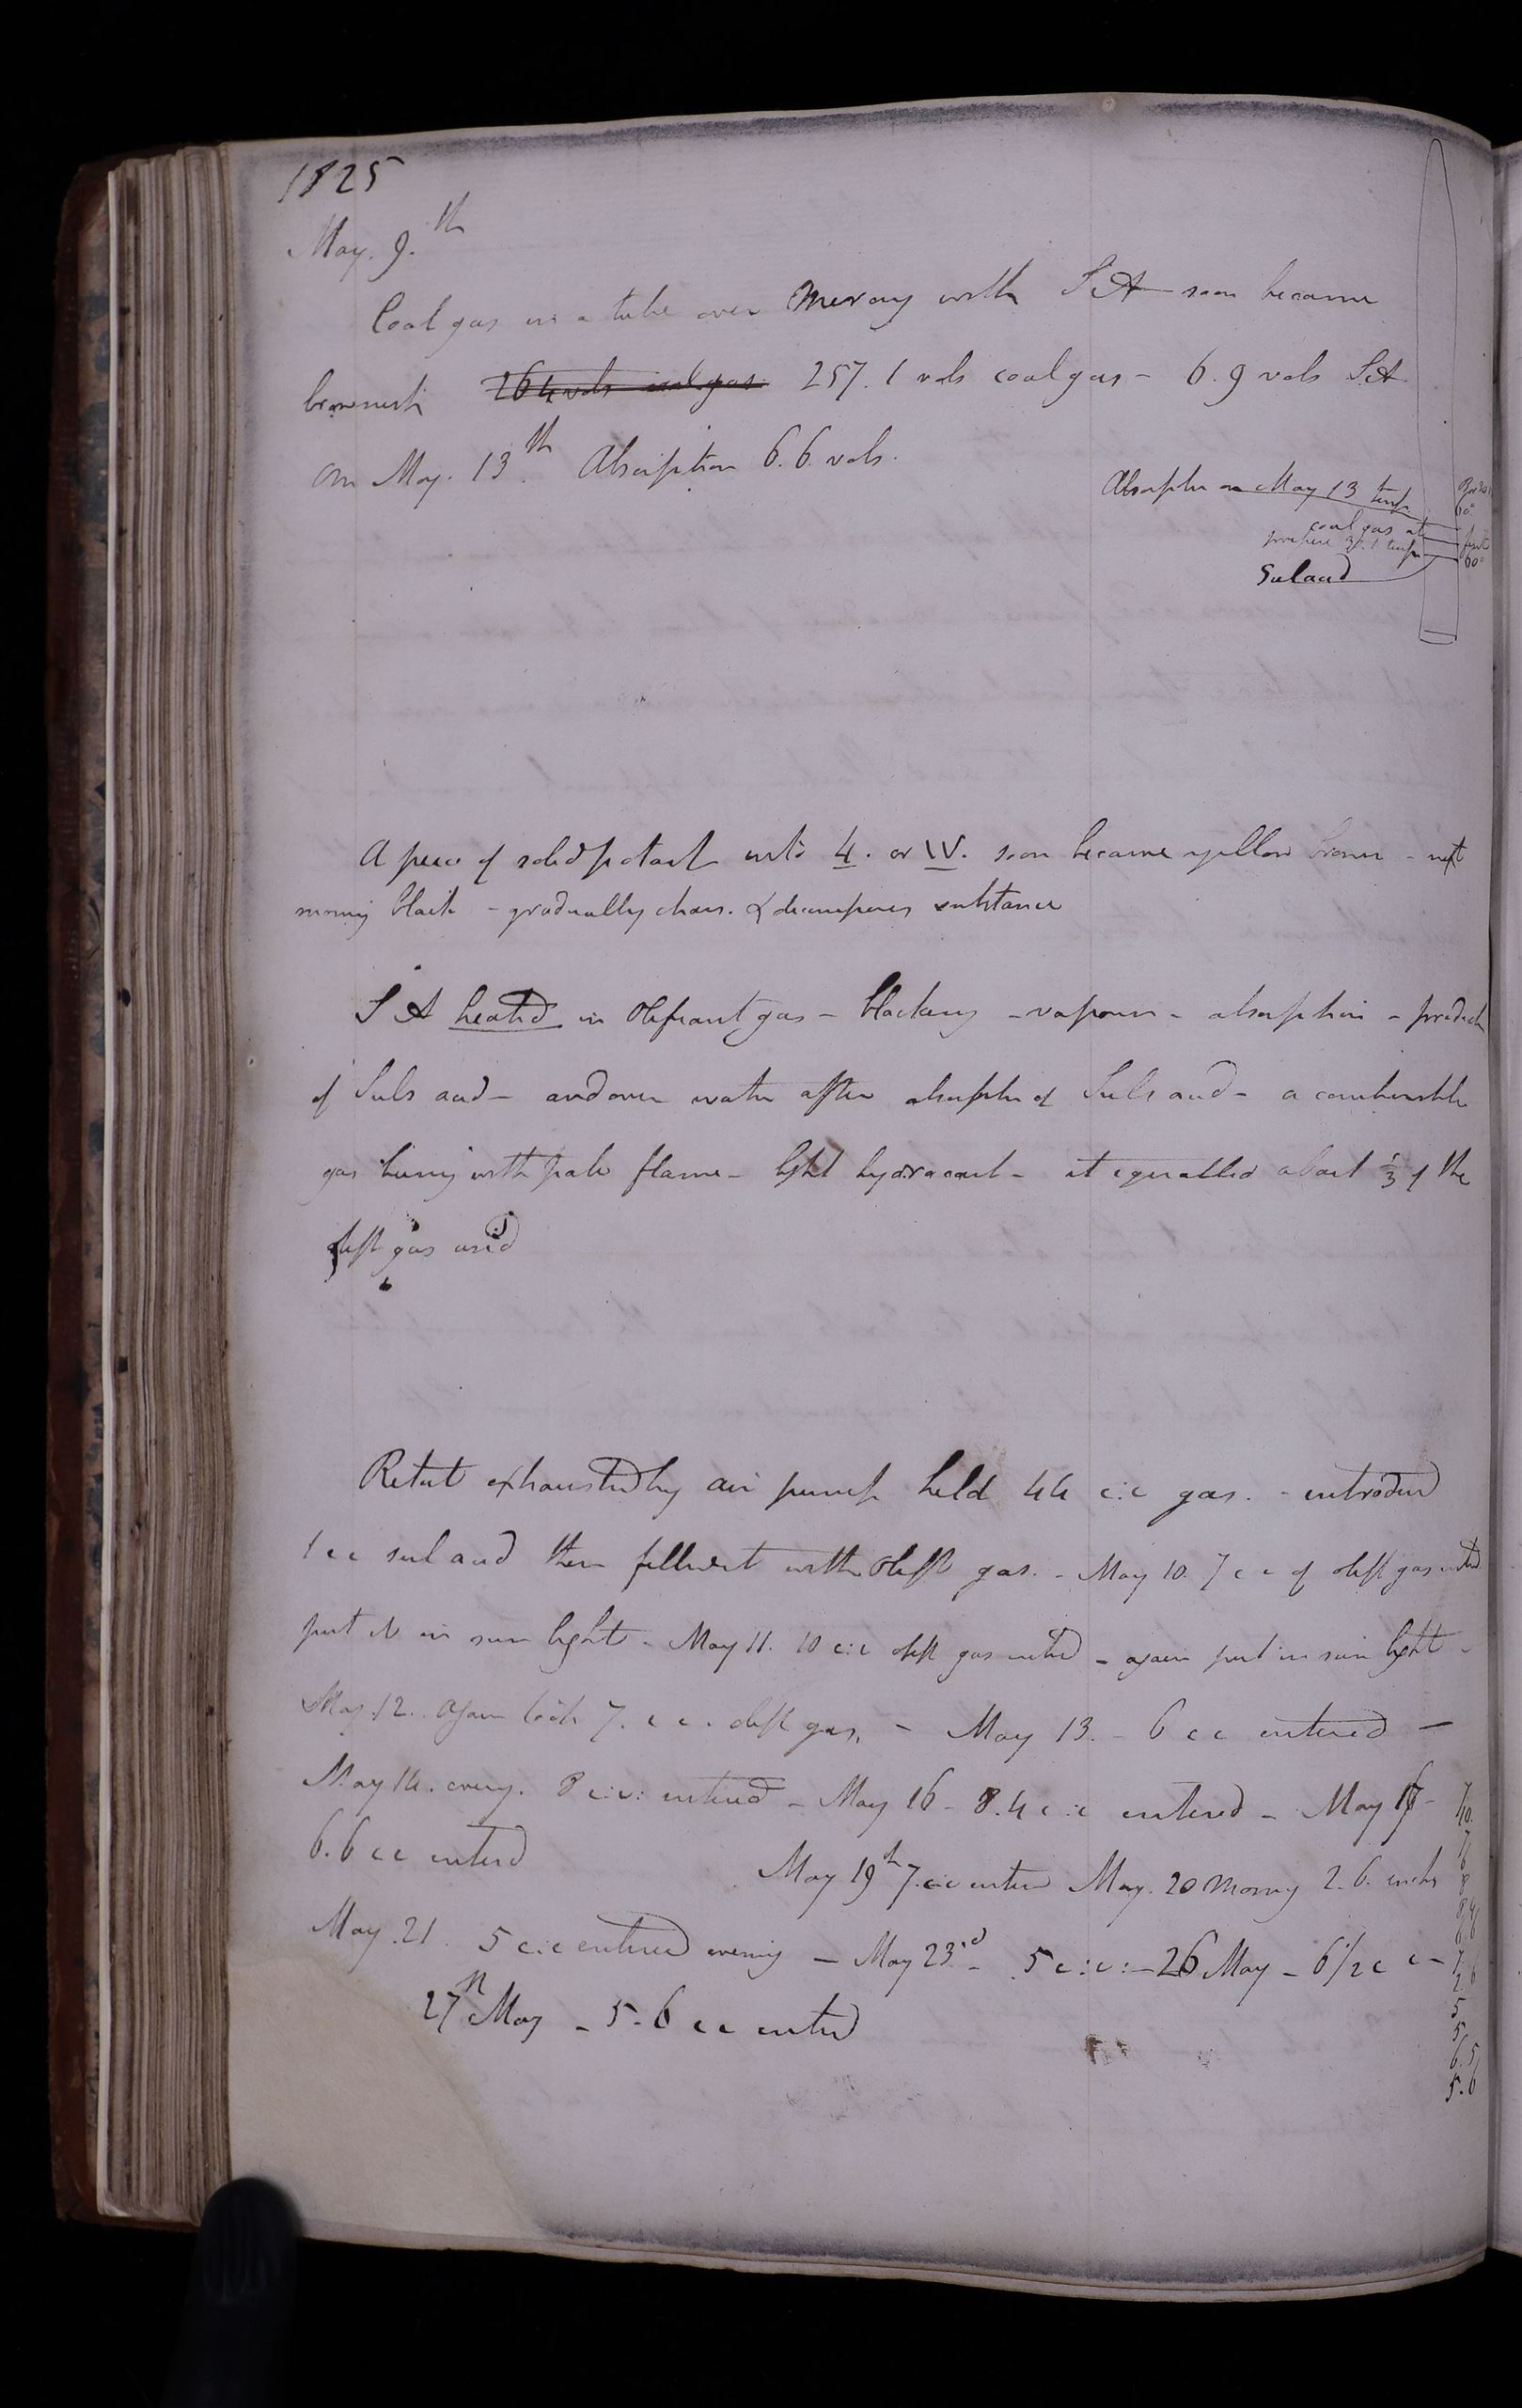 1825
May. 9.th
Coal gas in a tube over Mercury with S A soon became
brownish 264 vols coal gas 257.1 vols coal gas - 6.9 vols S.A
on May. 13th Absorption 6.6 vols.
Absorption on May 13 temp
60°
coal gas at first
pressure 30.1 temp 60°
Sul acid
A piece of solid potash into 4. or IV. soon became yellow brown - next
morning black - gradually chars. & decomposes substance
S A heated in Olefiant gas - blackens - vapour - absorption - product
of Suls acid - and over water after absorption of Suls acid - a combustible
gas burning with pale flame - light hydrocarb - it equalled about 1/3 of the
olefi gas used
Retort exhausted by air pump held 44 c:c gas. - introduced
1 c c sul acid then filled it with Olefi gas. - May 10. 7 c c of olefi gas entered
put it in sun light - May 11. 10 c:c olefi gas entered - again put in sun light -
May 12. Again took 7. c c. olefi gas, - May 13. - 6 c c entered -
May 14. eveng. 8 c:c: entered - May 16 - 8.4 c:c entered - May 17 -
6.6 c c enterd
May 19th 7. c:c enterd May. 20 Morng 2.6. inches
May. 21. 5 c:c entered evening - May 23rd - 5 c:c: - 26 May - 6 1/2 c c -
27th May - 5.6 c c enterd
7
10.
7
6
8
8.4
6.6
7
2.6
5
5
6.5
5.6